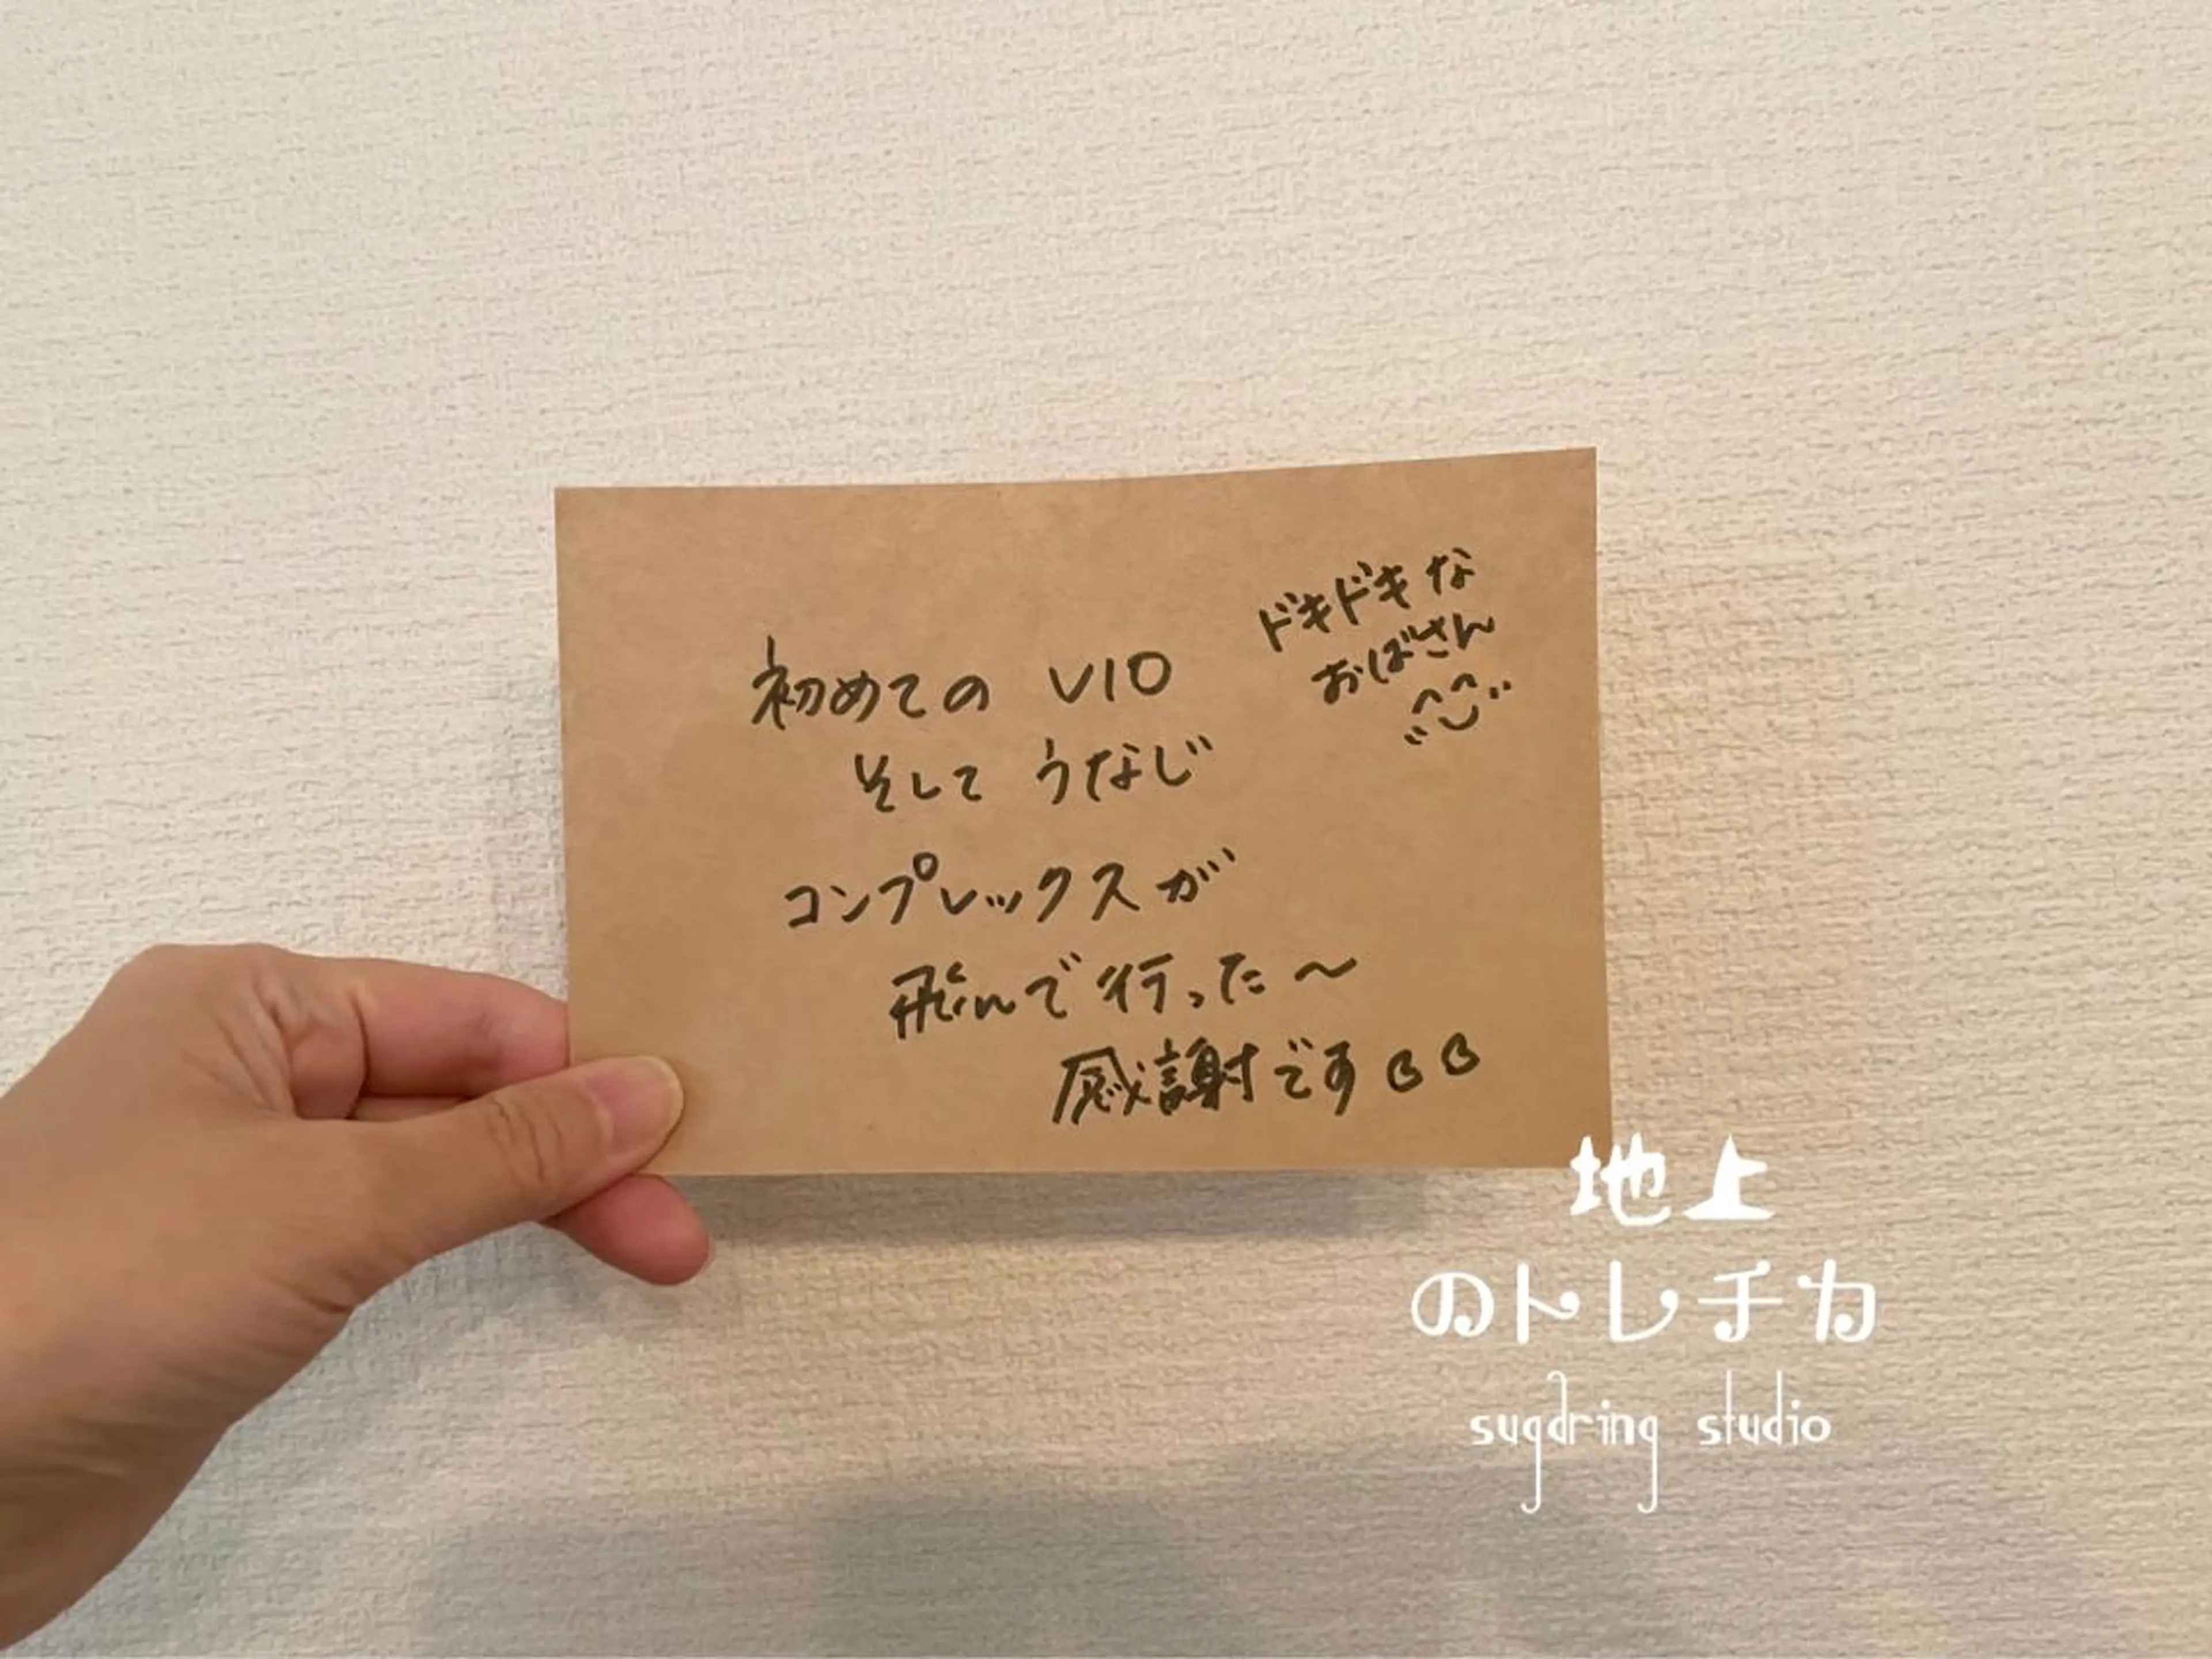 初めての VIO
そして うなじ
コンプレックスが
飛んで行った～
感謝です
ドキドキな
おばさん
地上
のトレチカ
sugaring studio